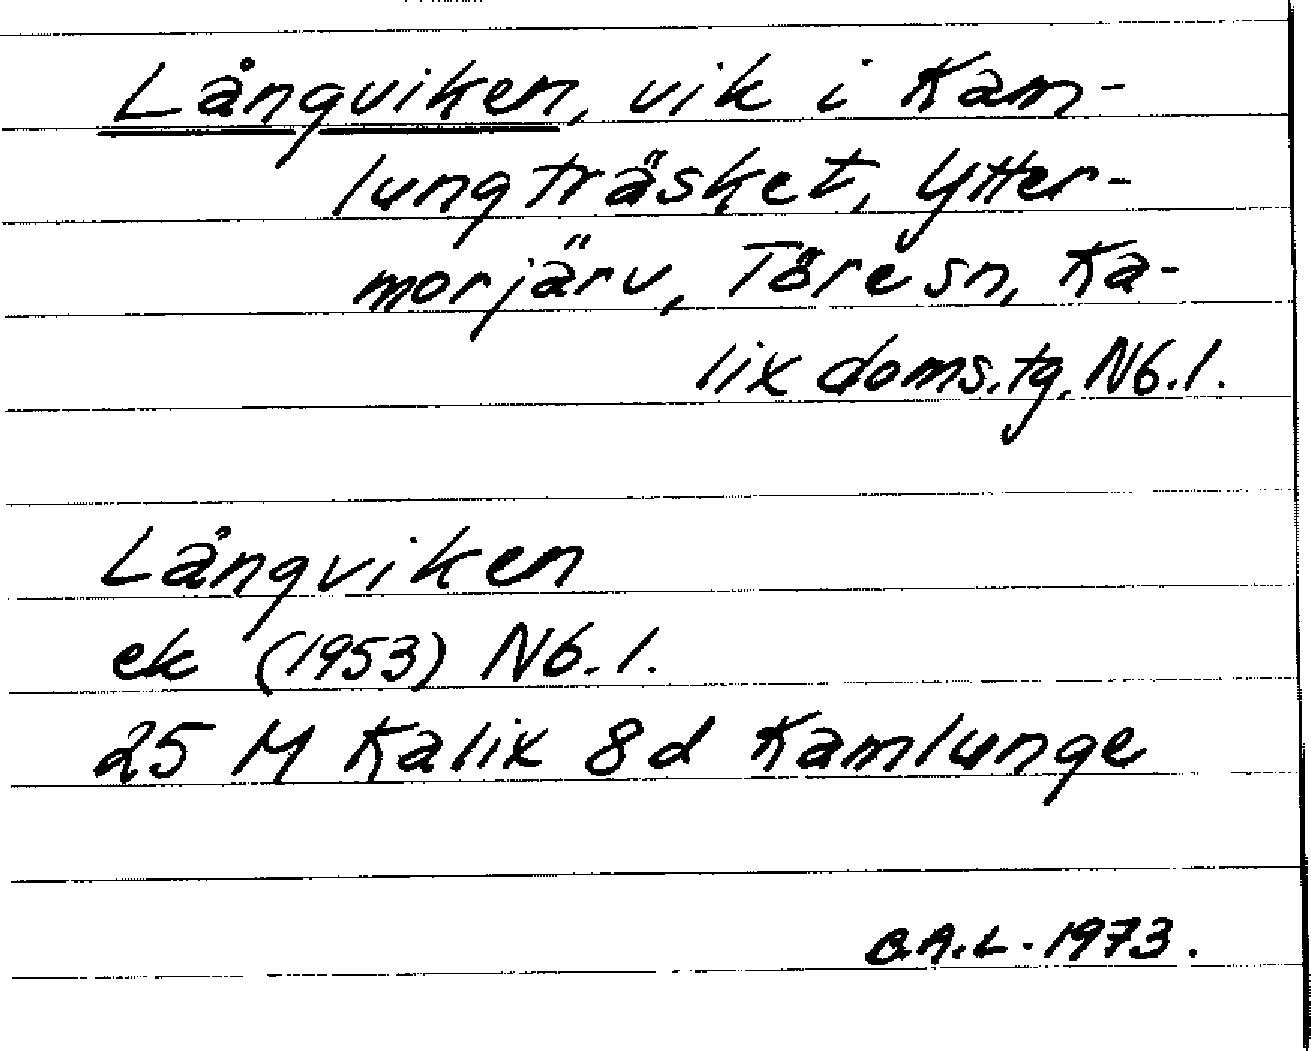 Långviken, vik i Kam-
lungträsket, Ytter-
morjärv, Töre sn, Ka-
lix doms.tg. Nb.l.
Långviken
ek (1953) Nb.l.
25 M Kalix 8d Kamlunge
C.A.L. 1973.